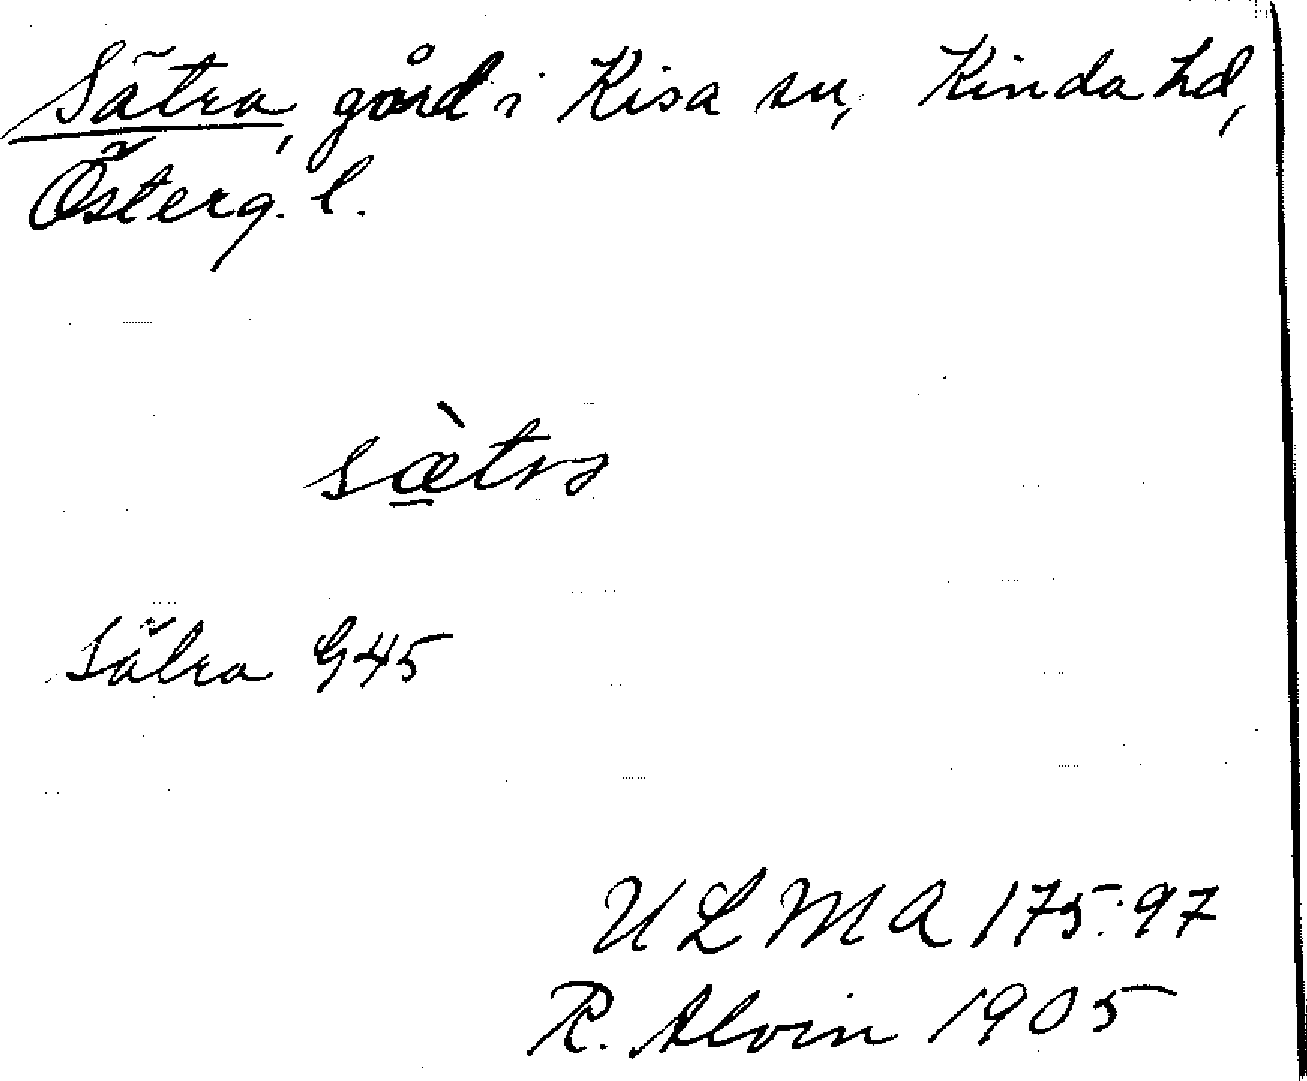 Sätra, gård i Kisa sn, Kinda hd,
Österg. l.
sæ̀trs
Sätra G45
ULMA 175:97
R. Alvin 1905